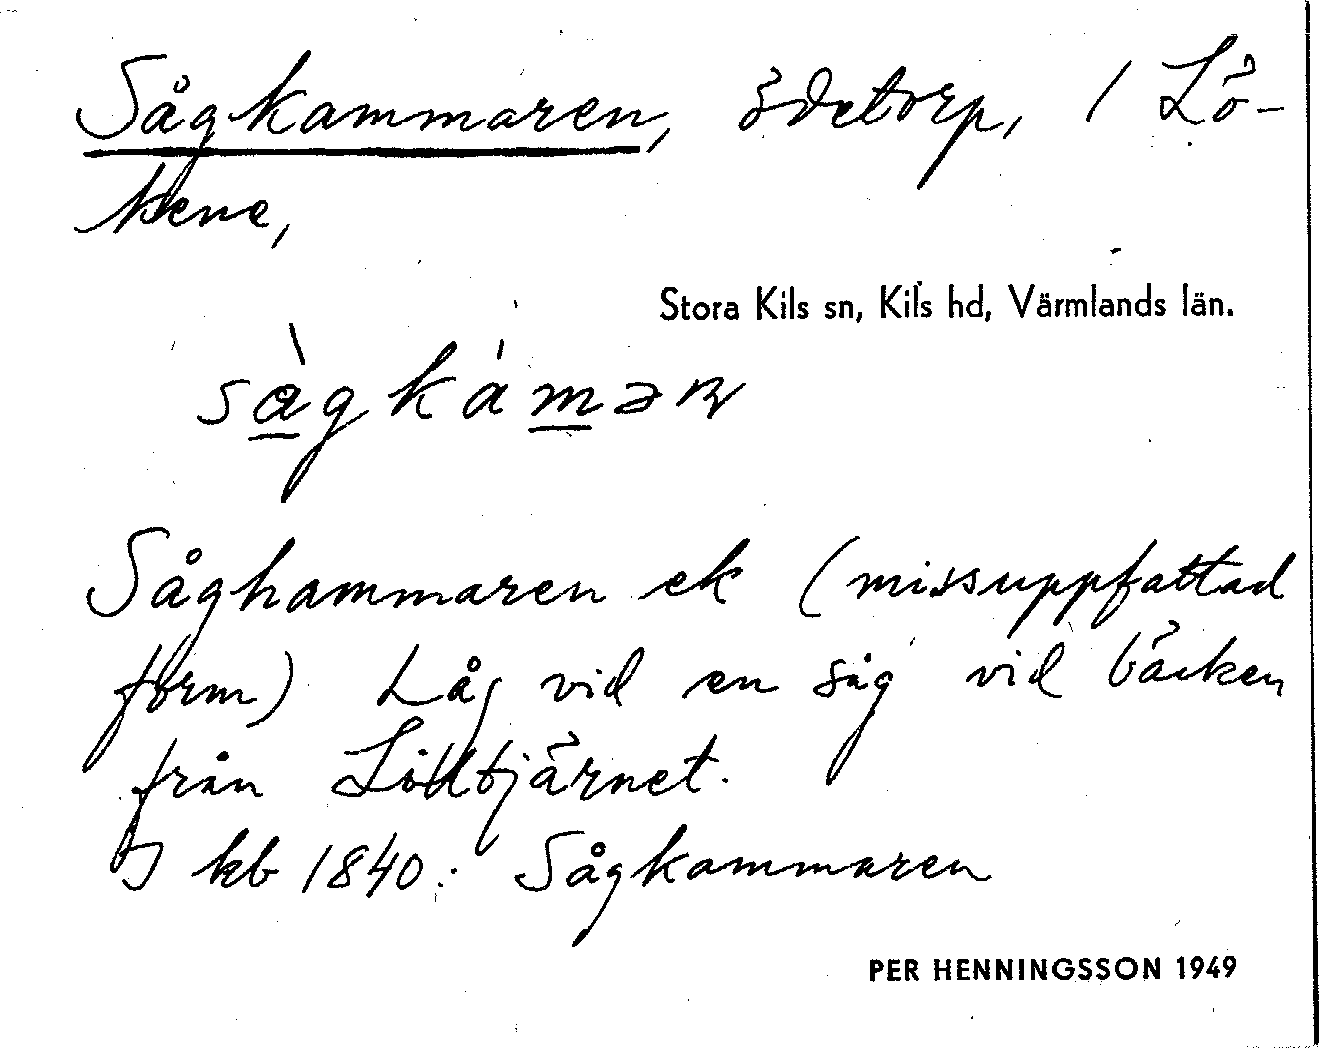 Sågkammaren, ödetorp, / Lö-
kene,
Stora Kils sn, Kils hd, Värmlands län.
sàgkámər
Såghammaren ek (missuppfattad
form) Låg vid en såg vid bäcken
från Lilltjärnet.
I kb 1840: Sågkammaren
PER HENNINGSSON 1949